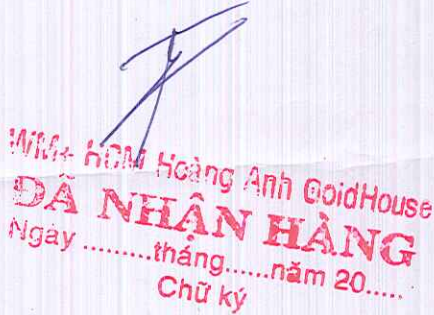 WM+ HCM Hoàng Anh GoldHouse
ĐÃ NHẬN HÀNG
Ngày .........tháng......năm 20.....
Chữ ký